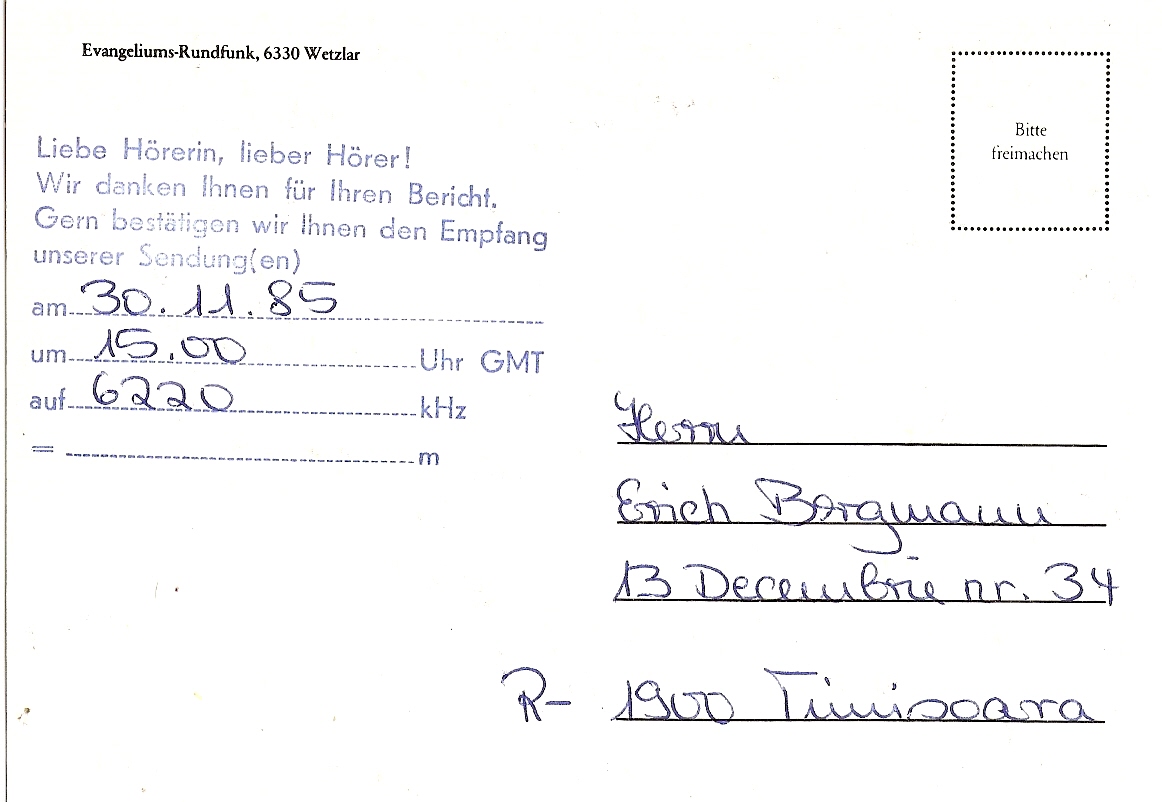 Evangeliums-Rundfunk, 6330 Wetzlar
Bitte
freimachen
Liebe Hörerin, lieber Hörer!
Wir danken Ihnen für Ihren Bericht.
Gern bestätigen wir Ihnen den Empfang
unserer Sendung(en)
am 30.11.85
um 15.00 Uhr GMT
auf 6220 kHz
= m
Herrn
Erich Bergmann
13 Decembrie nr. 34
R- 1900 Timisoara